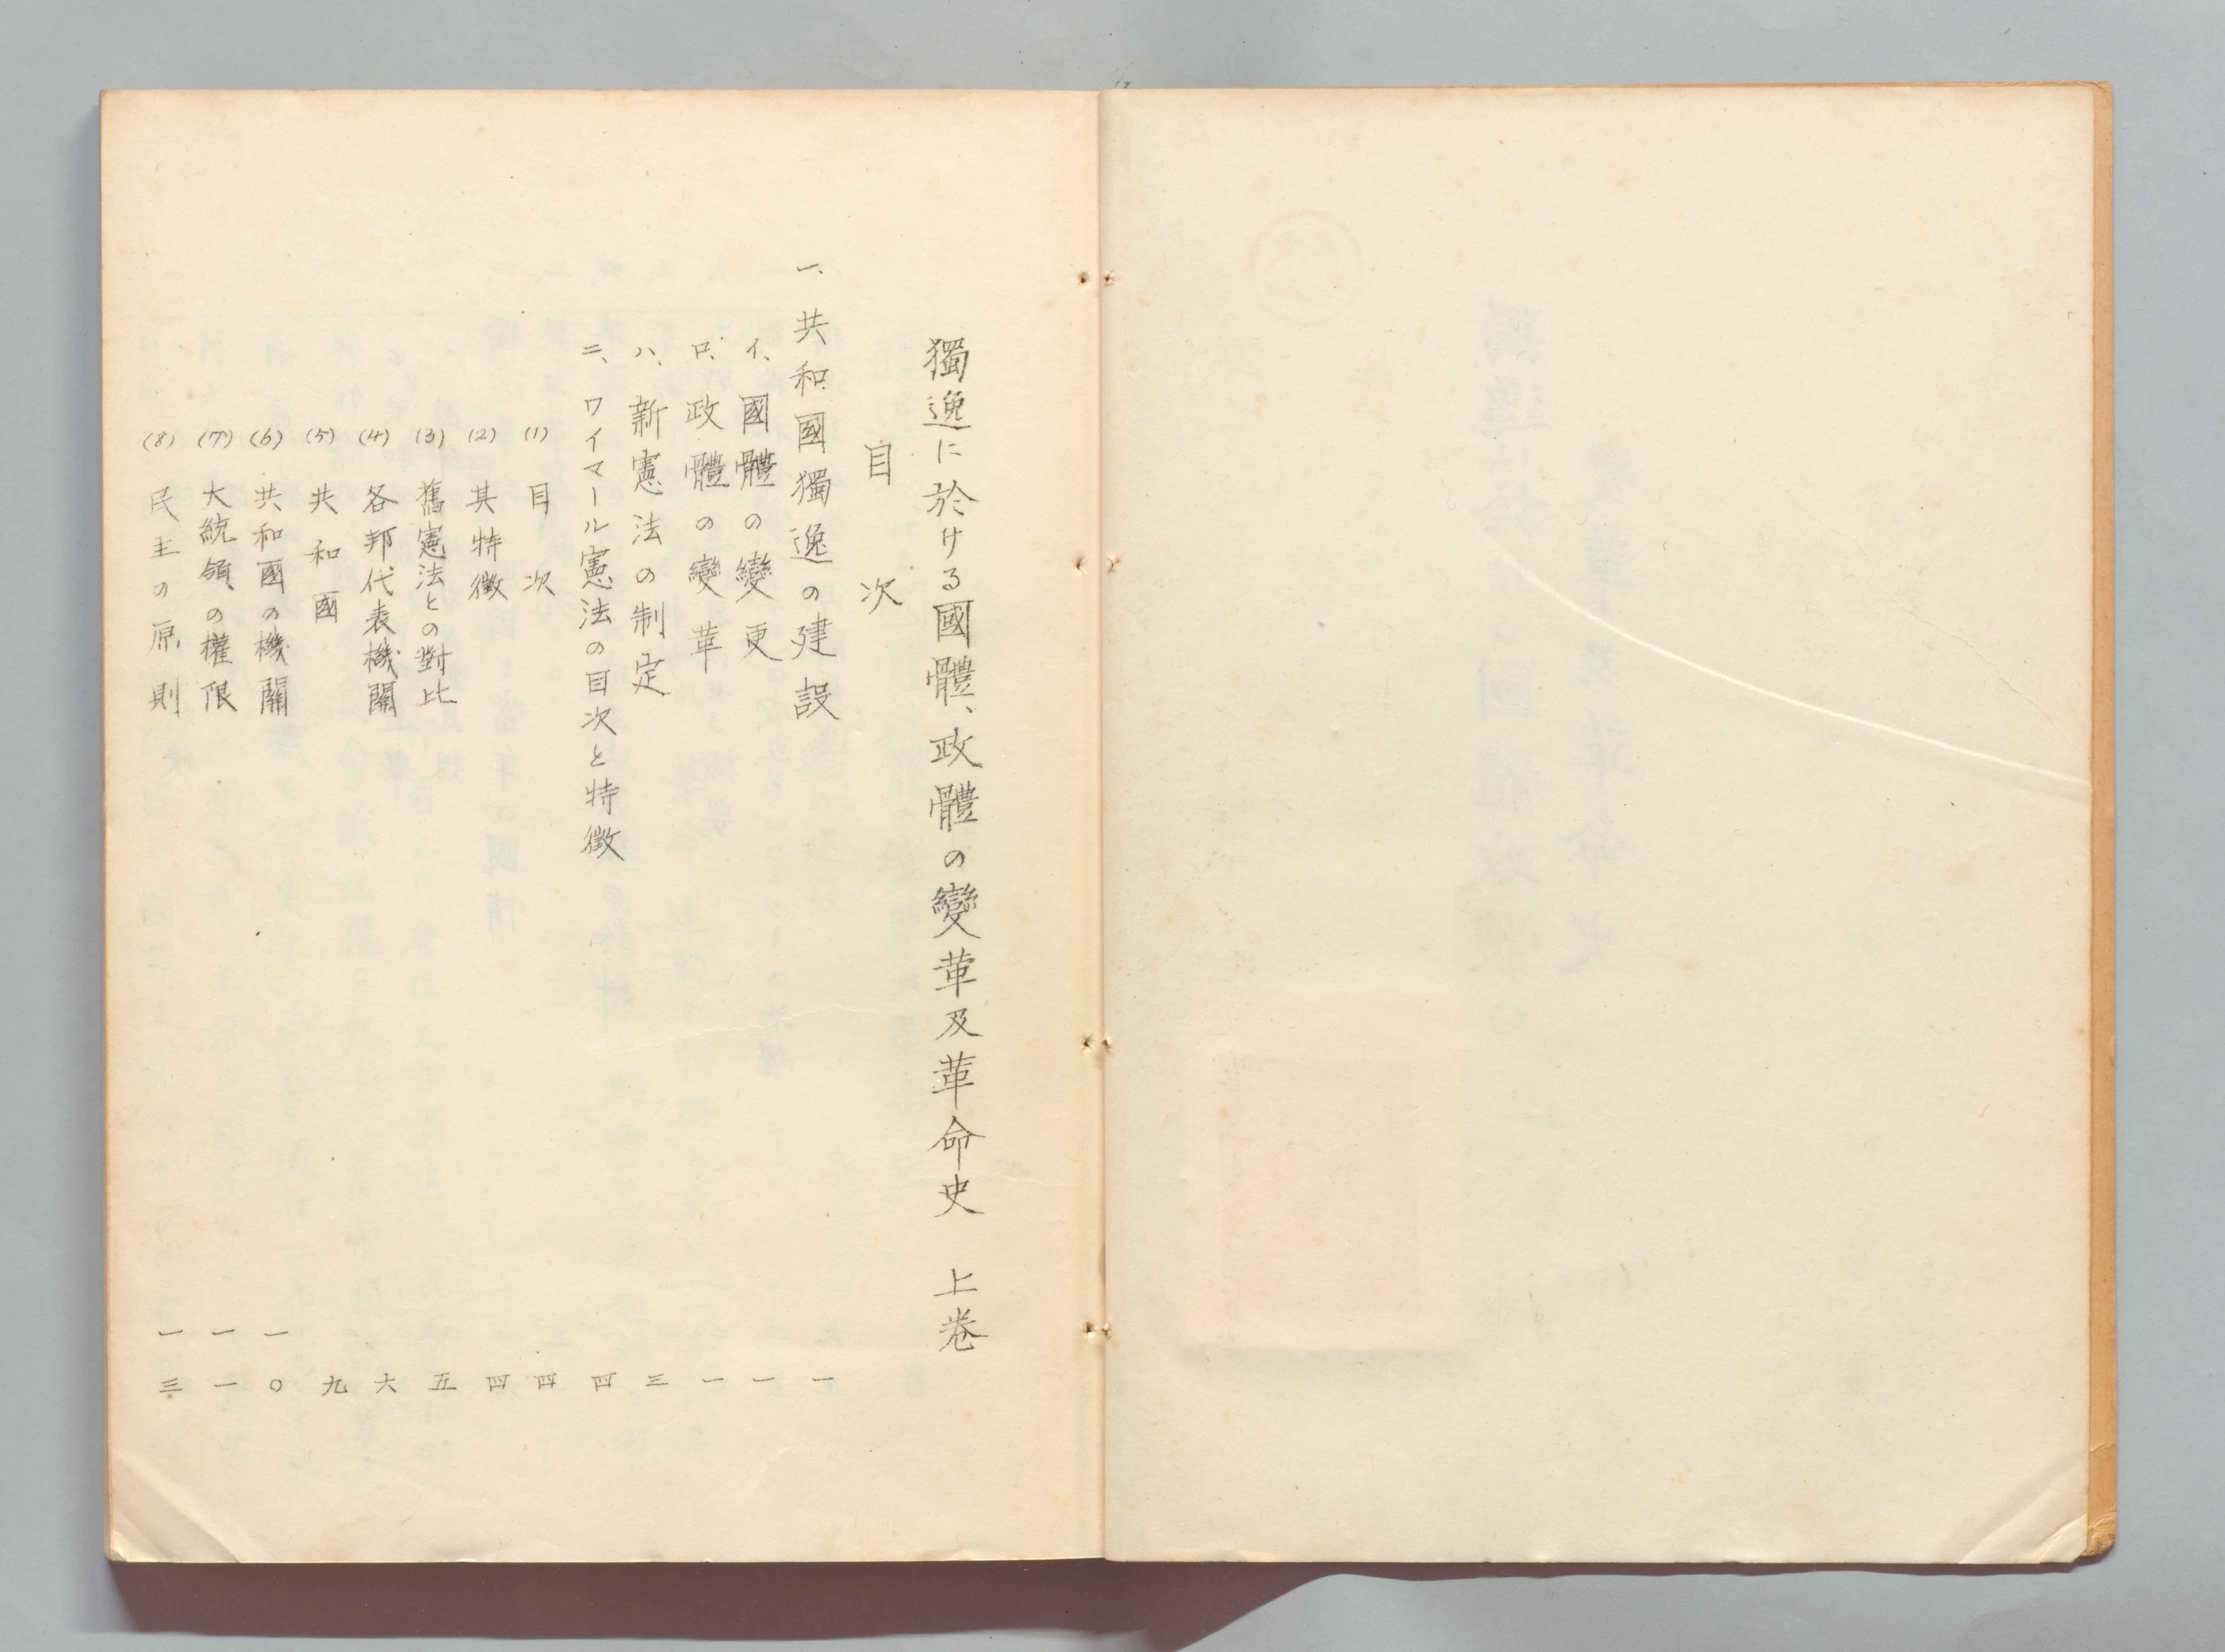 獨逸に於ける國體、政體の變革及革命史 上卷
目次
一、共和國獨逸の建設 一
イ、國體の變更 一
ロ、政體の變革 一
ハ、新憲法の制定 三
ニ、ワイマール憲法の目次と特徴 四
(1) 目次 四
(2) 其特徴 四
(3) 舊憲法との對比 五
(4) 各邦代表機關 六
(5) 共和國 九
(6) 共和國の機關 一〇
(7) 大統領の權限 一一
(8) 民主の原則 一三